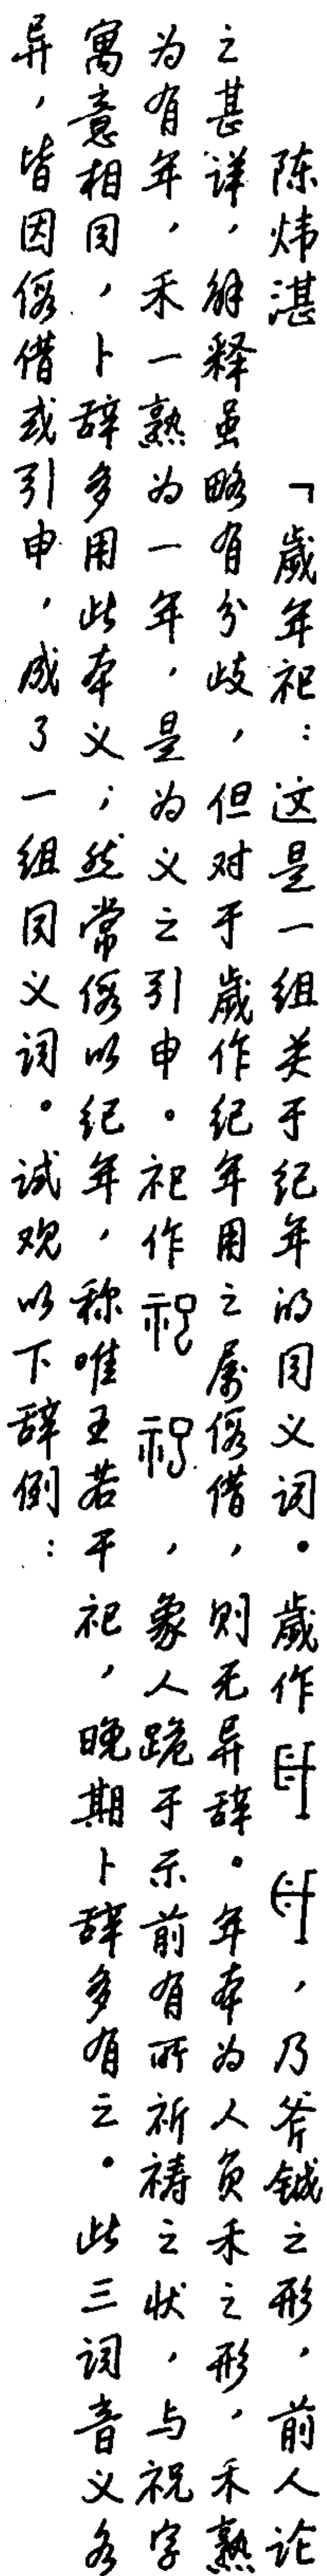 陈炜湛　「歲年祀：这是一组关于纪年的同义词。歲作，乃斧钺之形，前人论
之甚详，解释虽略有分歧，但对于歲作纪年用之属假借，则无异辞。年本为人负禾之形，禾熟
为有年，禾一熟为一年，是为义之引申。祀作，象人跪于示前有所祈祷之状，与祝字
寓意相同，卜辞多用此本义；然常假以纪年，称唯王若干祀，晚期卜辞多有之。此三词音义各
异，皆因假借或引申，成了一组同义词。试观以下辞例：